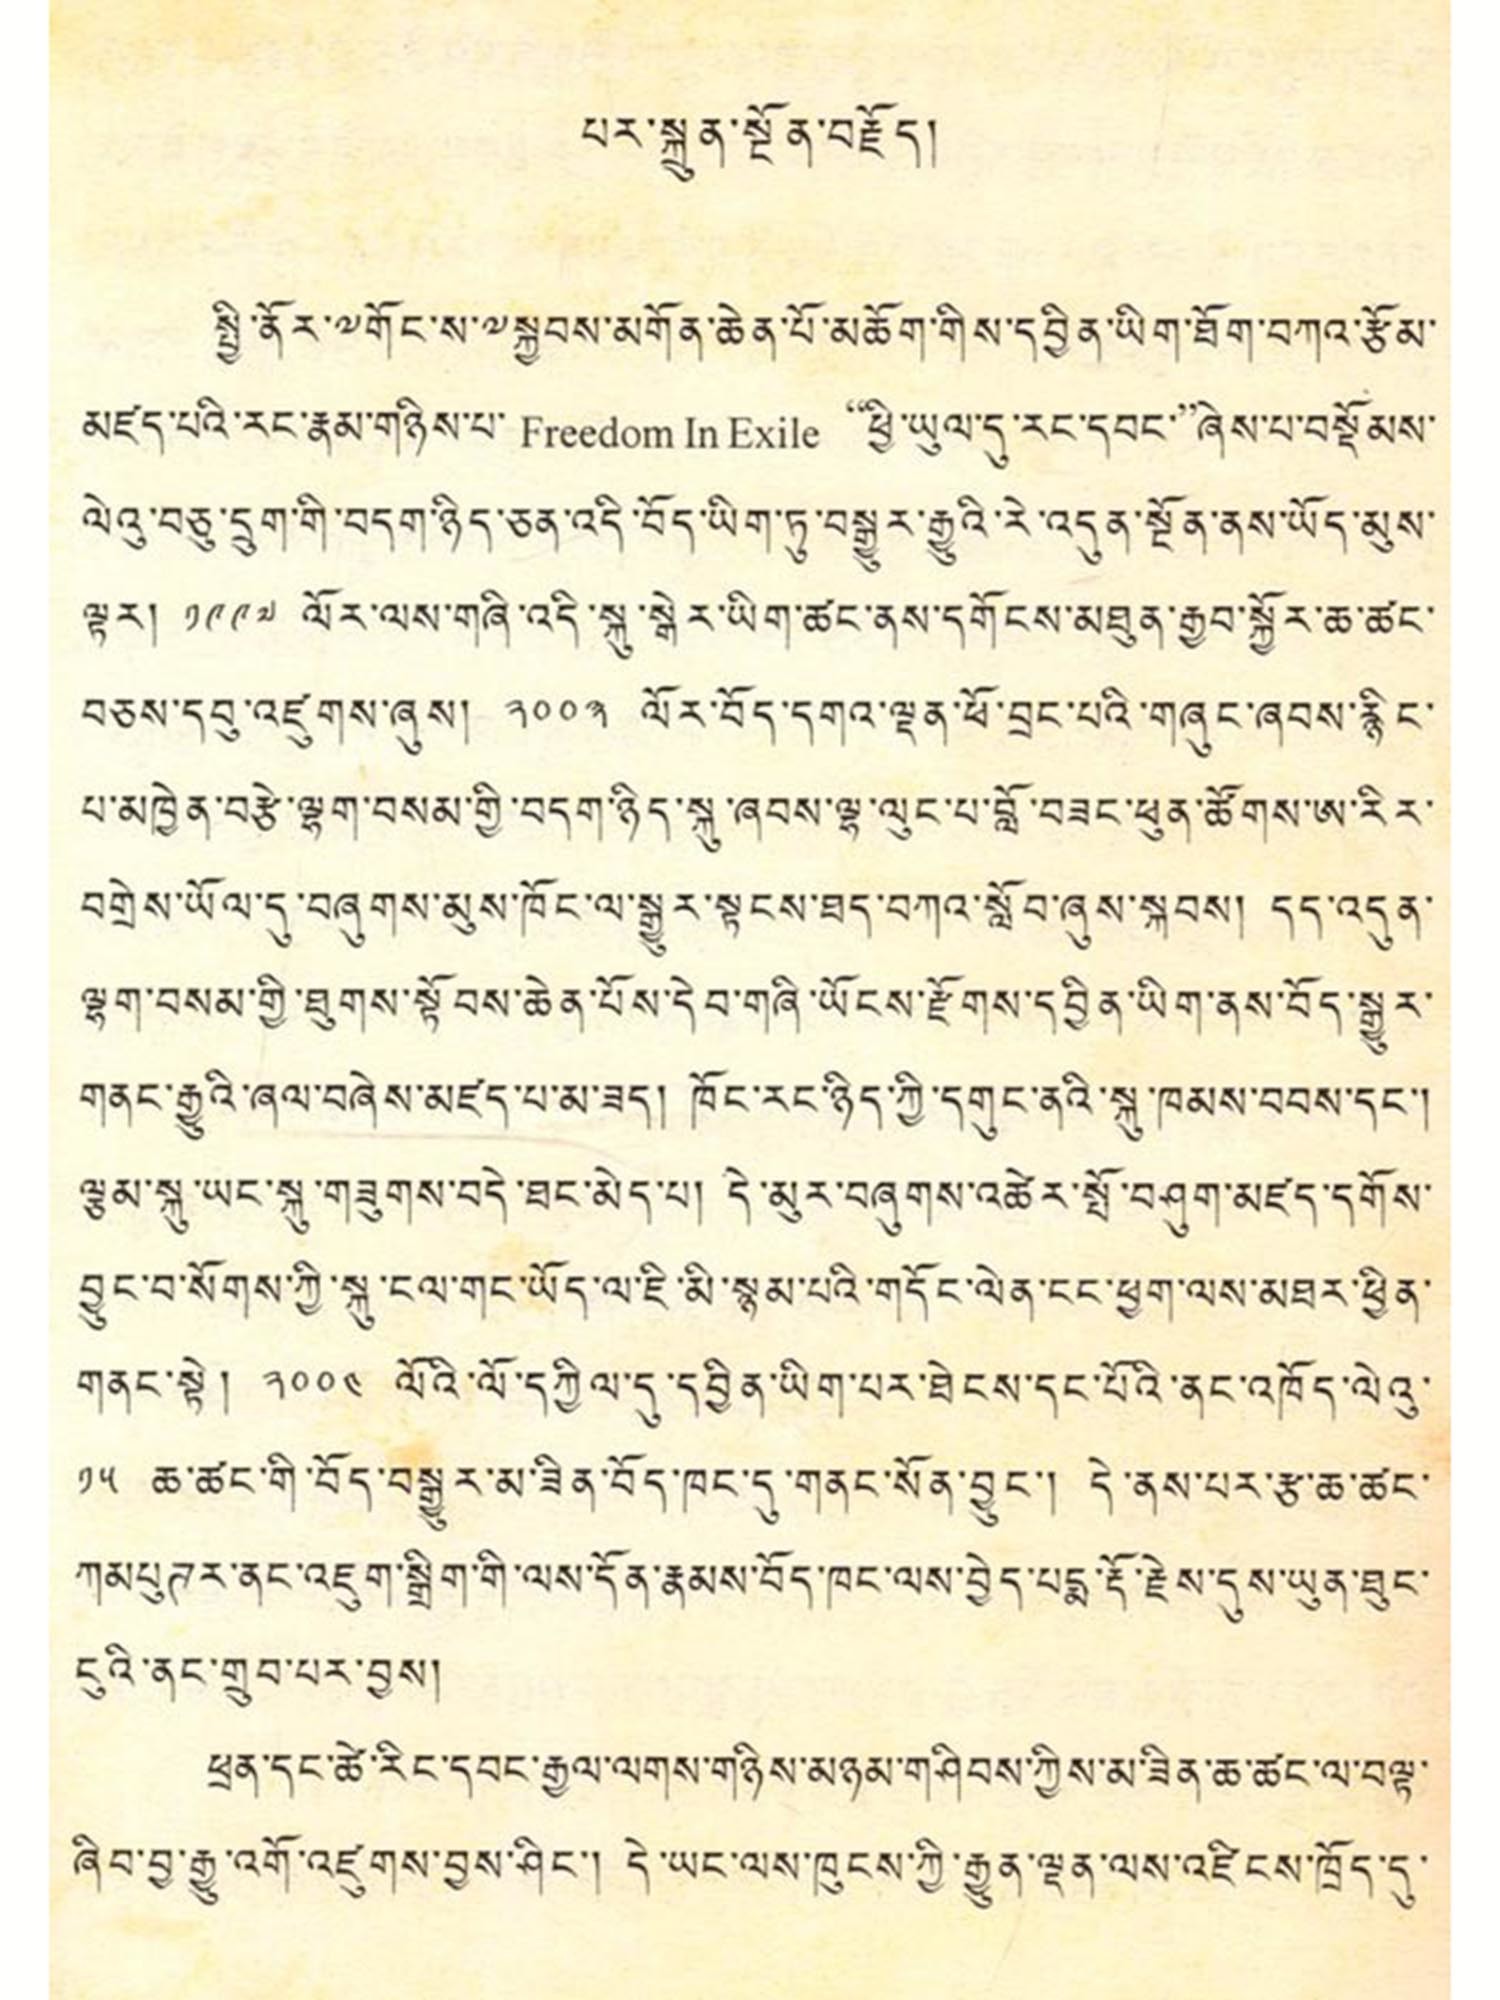 པར་སྐྲུན་སྔོན་བརྗོད།
སྤྱི་ནོར་༧གོང་ས་༧སྐྱབས་མགོན་ཆེན་པོ་མཆོག་གིས་དབྱིན་ཡིག་ཐོག་བཀའ་རྩོམ་
མཛད་པའི་རང་རྣམ་གཉིས་པ་ Freedom In Exile “ཕྱི་ཡུལ་དུ་རང་དབང་”ཞེས་པ་བསྡོམས་
ལེའུ་བཅུ་དྲུག་གི་བདག་ཉིད་ཅན་འདི་བོད་ཡིག་ཏུ་བསྒྱུར་རྒྱུའི་རེ་འདུན་སྔོན་ནས་ཡོད་མུས་
ལྟར། ༡༩༩༧ ལོར་ལས་གཞི་འདི་སྐུ་སྒེར་ཡིག་ཚང་ནས་དགོངས་མཐུན་རྒྱབ་སྐྱོར་ཆ་ཚང་
བཅས་དབུ་འཛུགས་ཞུས། ༢༠༠༣ ལོར་བོད་དགའ་ལྡན་ཕོ་བྲང་པའི་གཞུང་ཞབས་རྙིང་
པ་མཁྱེན་བརྩེ་ལྷག་བསམ་གྱི་བདག་ཉིད་སྐུ་ཞབས་ལྷ་ལུང་པ་བློ་བཟང་ཕུན་ཚོགས་ཨ་རིར་
བགྲེས་ཡོལ་དུ་བཞུགས་མུས་ཁོང་ལ་སྒྱུར་སྟངས་ཐད་བཀའ་སློབ་ཞུས་སྐབས། དད་འདུན་
ལྷག་བསམ་གྱི་ཐུགས་སྟོབས་ཆེན་པོས་དེབ་གཞི་ཡོངས་རྫོགས་དབྱིན་ཡིག་ནས་བོད་སྒྱུར་
གནང་རྒྱུའི་ཞལ་བཞེས་མཛད་པ་མ་ཟད། ཁོང་རང་ཉིད་ཀྱི་དགུང་ནའི་སྐུ་ཁམས་བབས་དང་།
ལྕམ་སྐུ་ཡང་སྐུ་གཟུགས་བདེ་ཐང་མེད་པ། དེ་མུར་བཞུགས་འཚེར་སྤོ་བཤུག་མཛད་དགོས་
བྱུང་བ་སོགས་ཀྱི་སྐུ་ངལ་གང་ཡོད་ལ་ཇི་མི་སྙམ་པའི་གདོང་ལེན་ངང་ཕྱག་ལས་མཐར་ཕྱིན་
གནང་སྟེ། ༢༠༠༤ ལོའི་ལོ་དཀྱིལ་དུ་དབྱིན་ཡིག་པར་ཐེངས་དང་པོའི་ནང་འཁོད་ལེའུ་
༡༥ ཆ་ཚང་གི་བོད་བསྒྱུར་མ་ཟིན་བོད་ཁང་དུ་གནང་སོན་བྱུང་། དེ་ནས་པར་རྩ་ཆ་ཚང་
ཀམཔུཊར་ནང་འཇུག་སྒྲིག་གི་ལས་དོན་རྣམས་བོད་ཁང་ལས་བྱེད་པདྨ་རྡོ་རྗེས་དུས་ཡུན་ཐུང་
ངུའི་ནང་གྲུབ་པར་བྱས།
ཕྲན་དང་ཚེ་རིང་དབང་རྒྱལ་ལགས་གཉིས་མཉམ་གཤིབས་ཀྱིས་མ་ཟིན་ཆ་ཚང་ལ་བལྟ་
ཞིབ་བྱ་རྒྱུ་འགོ་འཛུགས་བྱས་ཤིང་། དེ་ཡང་ལས་ཁུངས་ཀྱི་རྒྱུན་ལྡན་ལས་འཛིངས་ཁྲོད་དུ་